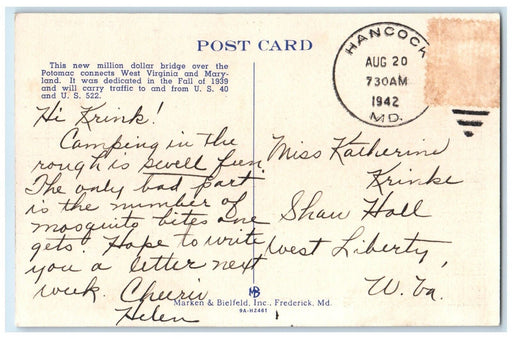 POST CARD
This new million dollar bridge over the
Potomac connects West Virginia and Mary-
land. It was dedicated in the Fall of 1939
and will carry traffic to and from U. S. 40
and U. S. 522.
HANCOCK
AUG 20
730AM
1942
MD.
Hi Krink!
Camping in the
rough is swell fun.
The only bad part
is the number of
mosquito bites one
gets. Hope to write
you a letter next
week. Cheerio
Helen
Miss Katherine
Krinke
Shaw Hall
West Liberty,
W. Va.
MB
Marken & Bielfeld, Inc., Frederick, Md.
9A-H2461